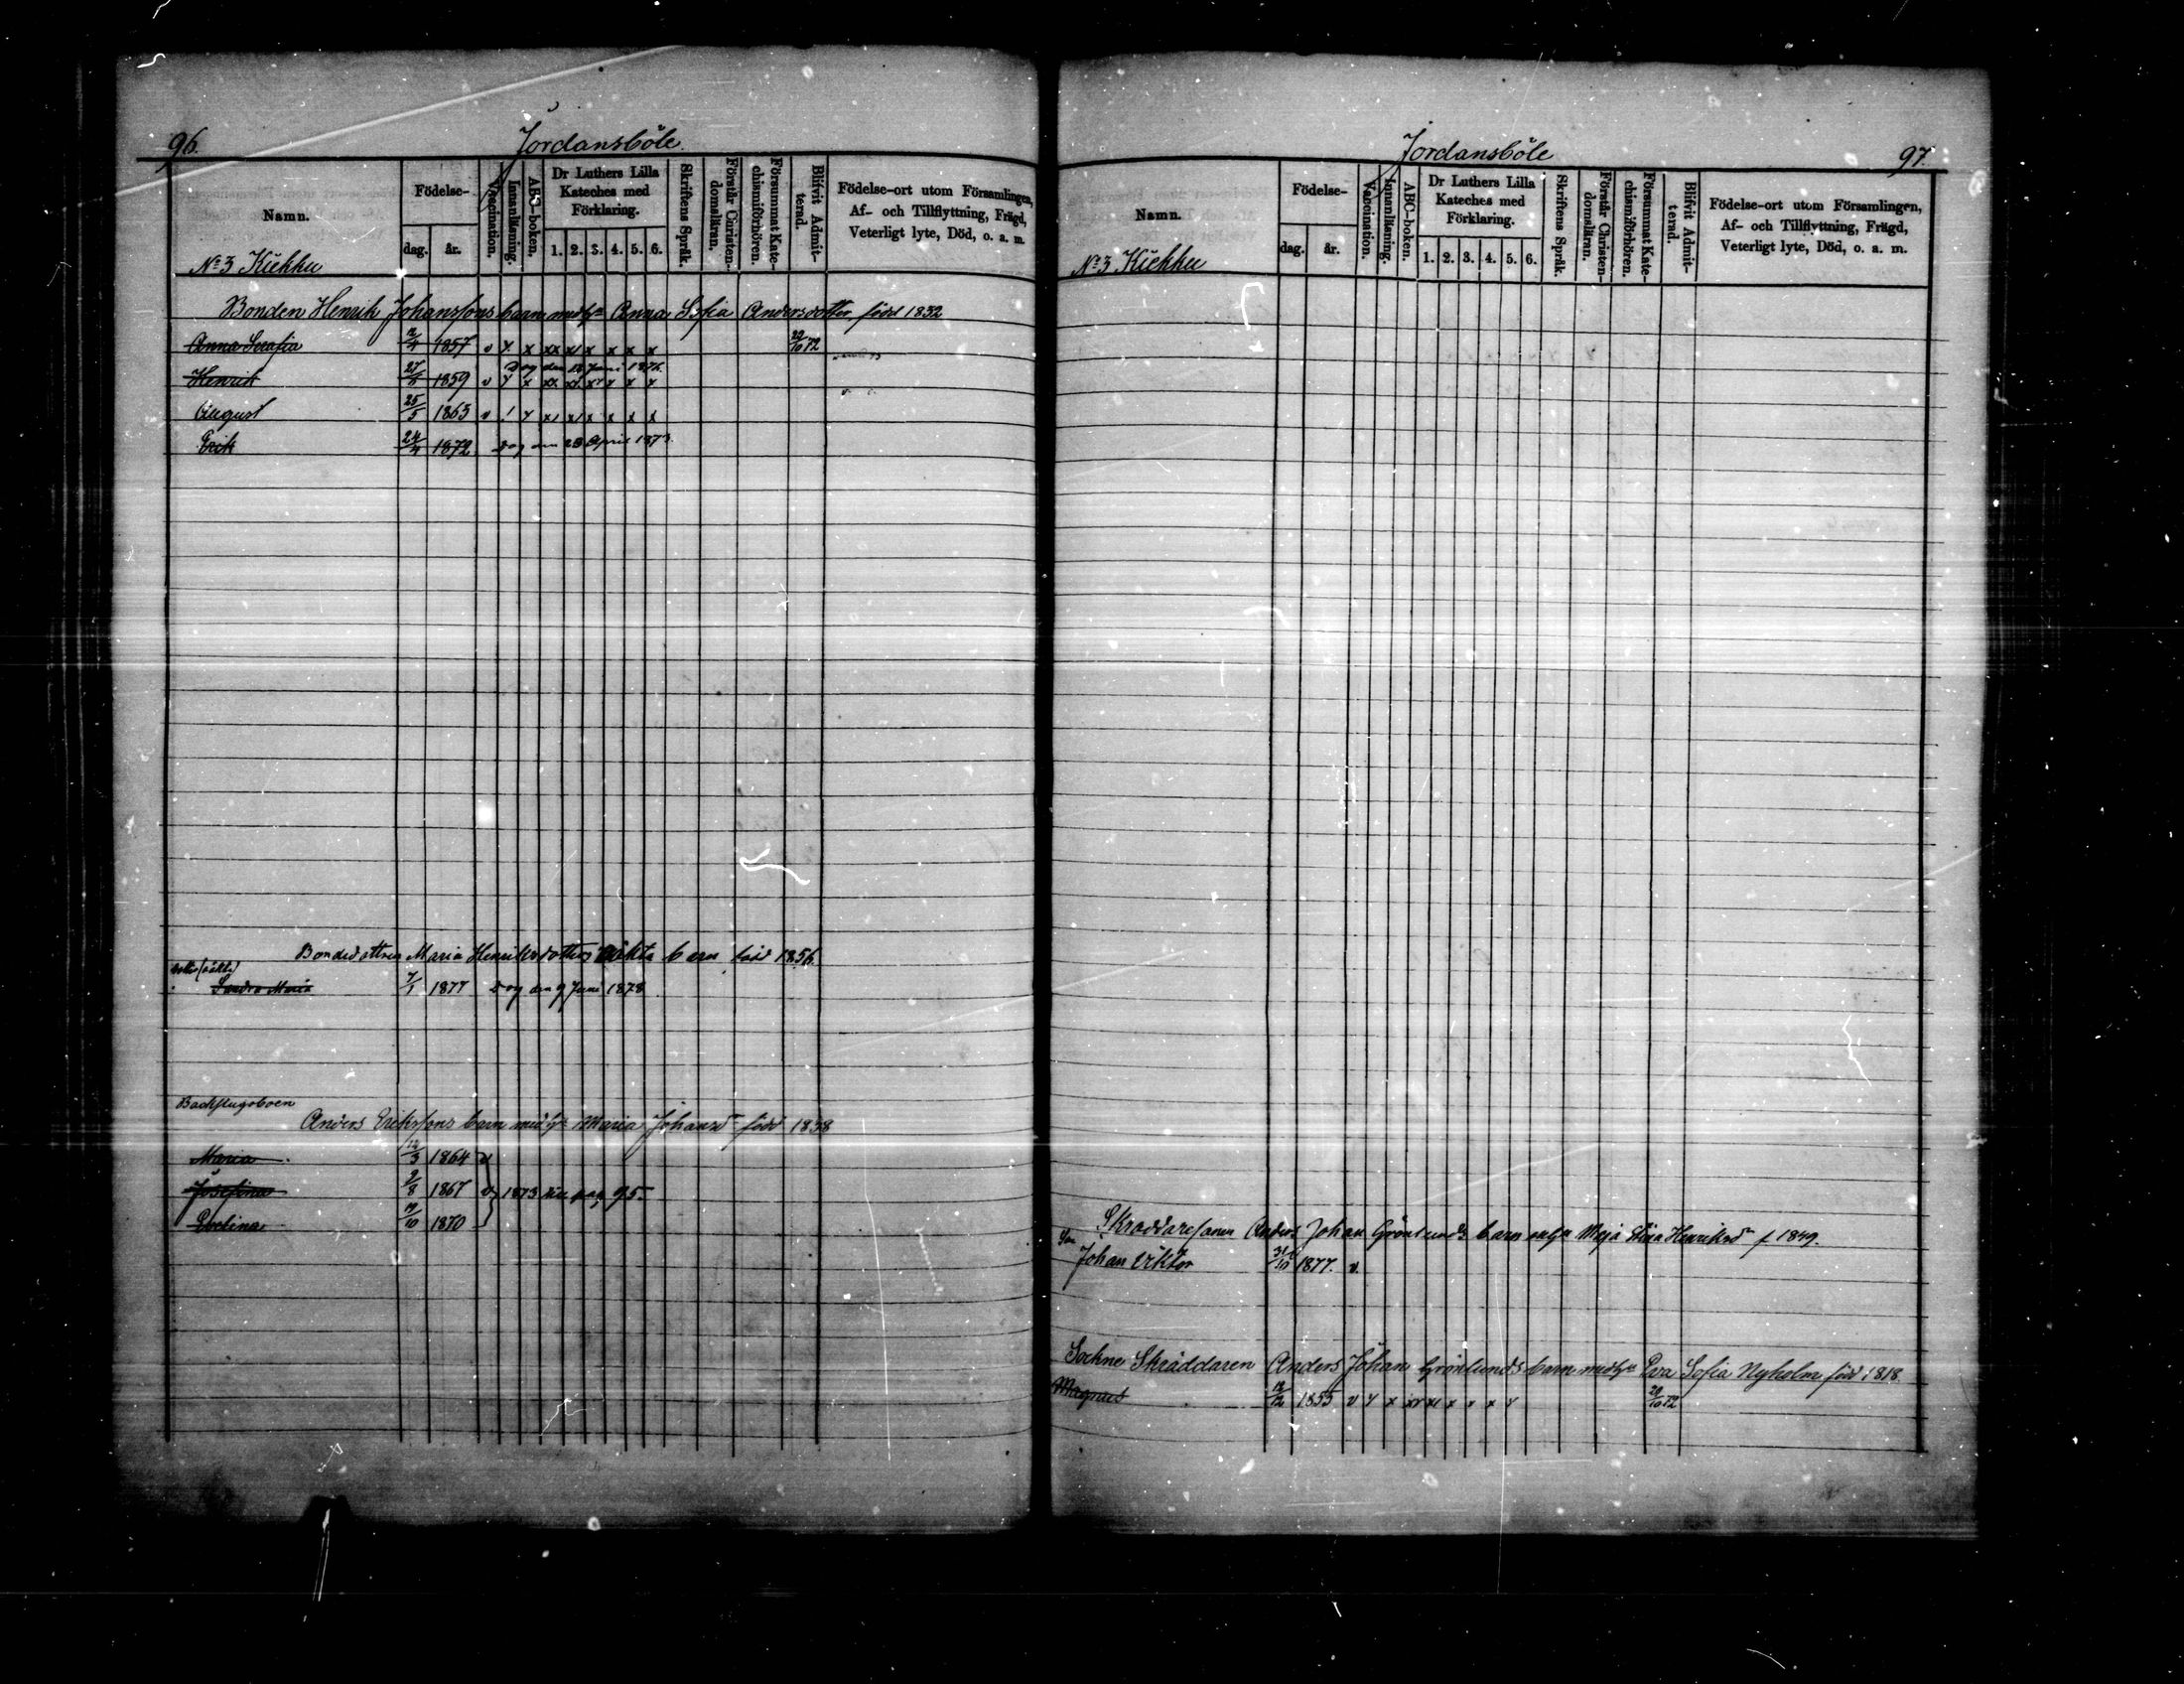 96.
Jordansböle.
Namn.
Födelse-
dag.
år.
Vaccination.
Innanläsning.
ABC-boken.
Dr Luthers Lilla
Kateches med
Förklaring.
1. 2. 3. 4. 5. 6.
Skriftens Språk.
Förstår Christen-
domsläran.
Försummat Kate-
chismiförhören.
Blifvit Admit-
terad.
Födelse-ort utom Församlingen,
Af- och Tillflyttning, Frägd,
Veterligt lyte, Död, o. a. m.
No 3 Kiekku
Bonden Henrik Johanssons barn med h:u Anna Sofia Andersdotter född 1832
Anna Serafia 12/4 1857 v x x xx x/ x x x x 22/10 72
Dog den 18 Juni 1876.
Henrik 1859 v
August 25/5 1865 v
Erik 24/4 1872 Dog den 28 April 1873.
Bondedottren Maria Henriksdotters oäkta barn född 1856.
Sandra Maria 7/1 1877 Dog den 9 Juni 1878
Backstugoboen
Anders Erikssons barn med h:u Maria Johansd:r född 1838
Maria 12/3 1864 v
Josefina 2/8 1867 v 1873 pag 95.
Evelina 19/10 1870
97.
Jordansböle
Namn.
Födelse-
dag.
år.
Vaccination.
Innanläsning.
ABC-boken.
Dr Luthers Lilla
Kateches med
Förklaring.
1. 2. 3. 4. 5. 6.
Skriftens Språk.
Förstår Christen-
domsläran.
Försummat Kate-
chismiförhören.
Blifvit Admit-
terad.
Födelse-ort utom Församlingen,
Af- och Tillflyttning, Frägd,
Veterligt lyte, Död, o. a. m.
No 3 Kiekku
Skräddaresonen Anders Johan Grönlunds barn Maja Stina Henriksd:r f 1849.
Son
Johan Viktor 31/10 1877. v.
Sockne Skräddaren Anders Johan Grönlunds barn med h:u Eva Sofia Nyholm född 1818.
Magnus 12/12 1855 v 20/10 72